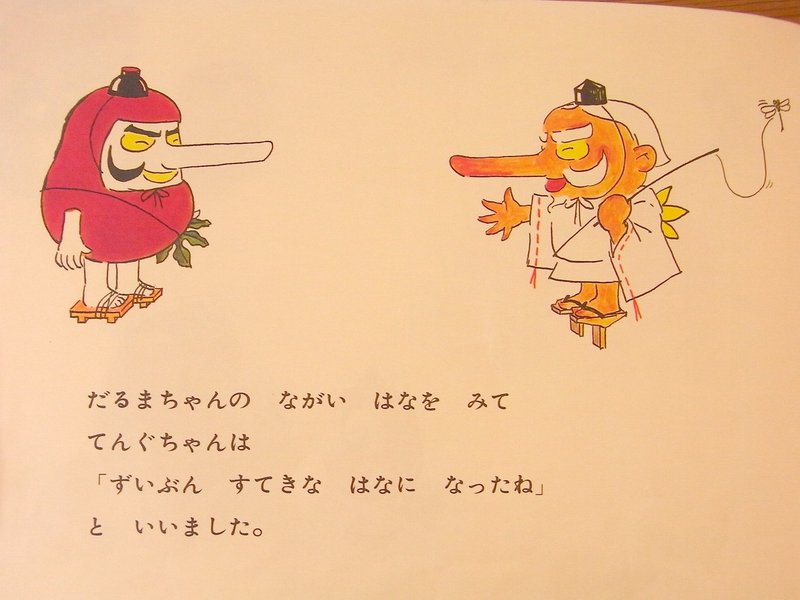 だるまちゃんの　ながい　はなを　みて
てんぐちゃんは
「ずいぶん　すてきな　はなに　なったね」
と　いいました。